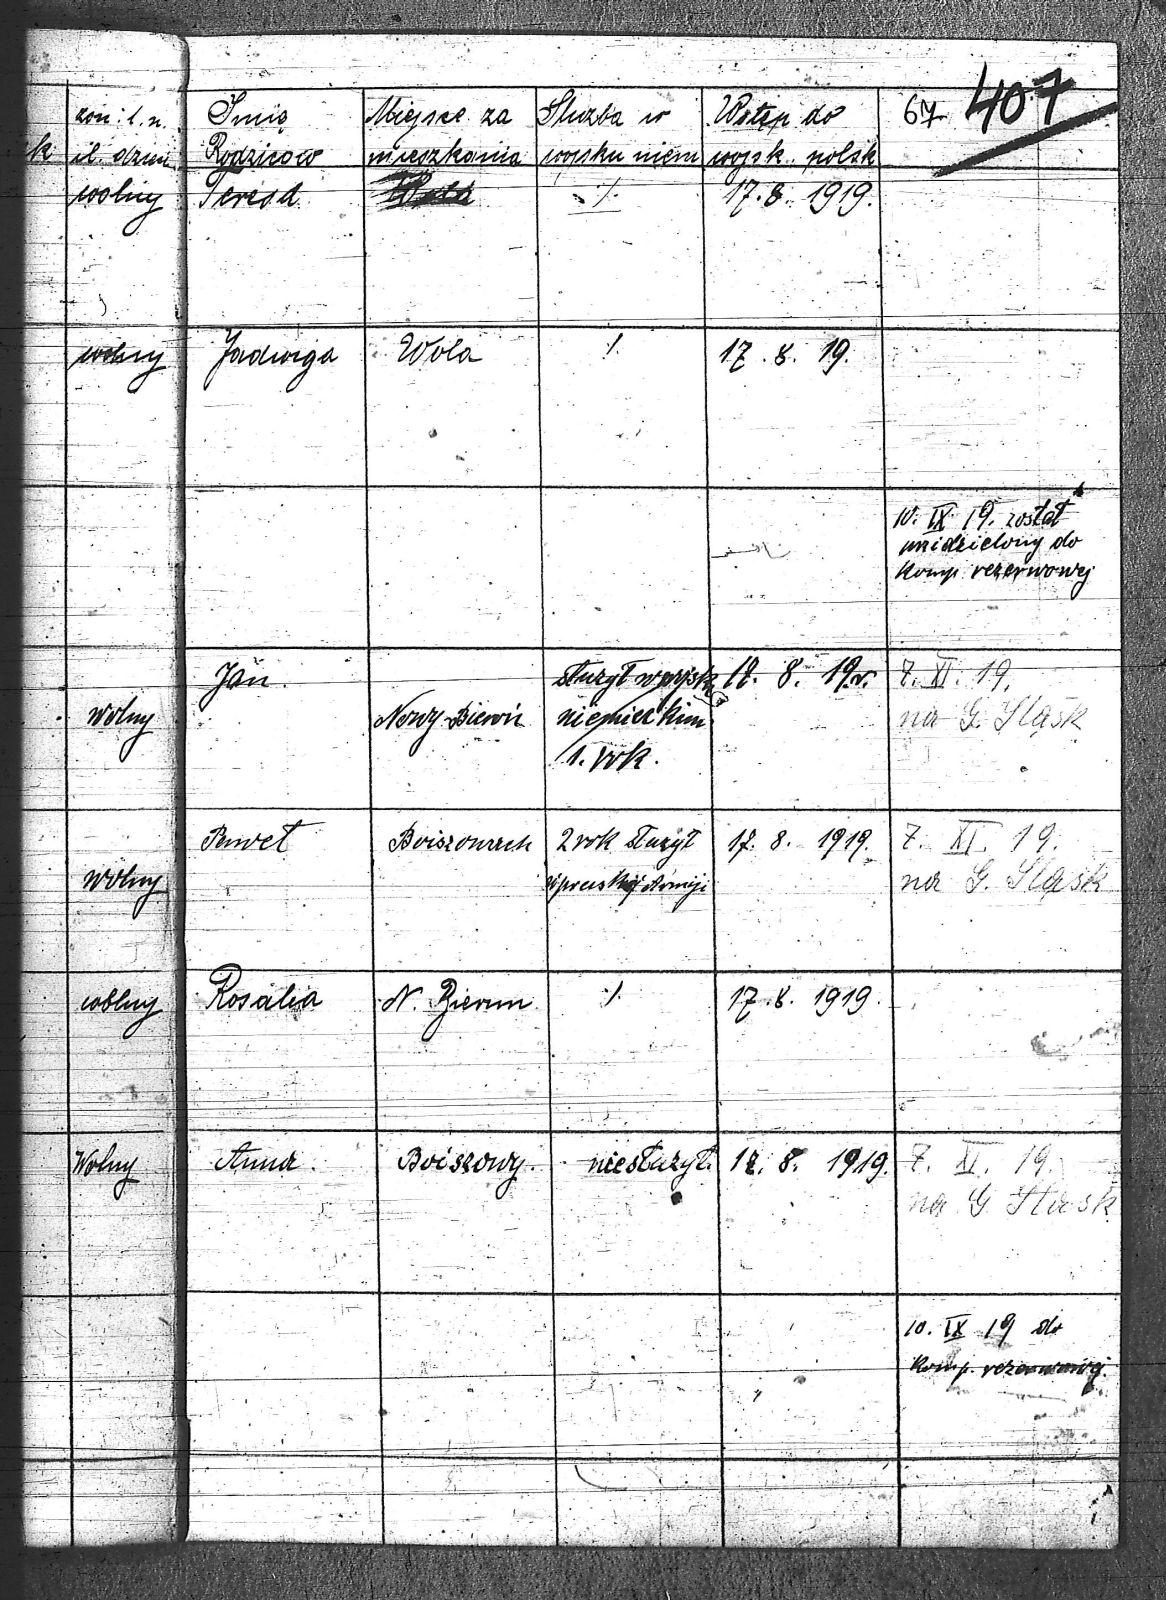 żon: l. n. Imię Miejsce za Służba w Wstęp do 67 407
k il. dzieci Rodziców mieszkania wojsku niem wojsk. polsk
wolny Teresa ./. 17.8. 1919.
wolny Jadwiga Wola ./. 17.8.19.
10. IX 19. został
przidzielony do
komp. rezerwowej
Jan. służył w wojsk 17. 8. 19 r. 7. XI. 19.
wolny Nowy-Bieruń niemieckim na G. Sląsk
1. rok.
Paweł Boiszowach 2 rok służył 17. 8. 1919. 7. XI. 19.
wolny w pruskiej Armiji na G. Sląsk
wolny Rosalia N. Bierun ./. 17.8. 1919.
Wolny Anna. Boiszowy. niesłużył. 17. 8. 1919. 7. XI. 19.
na G. Sląsk
10. IX 19 do
komp. rezerwowej